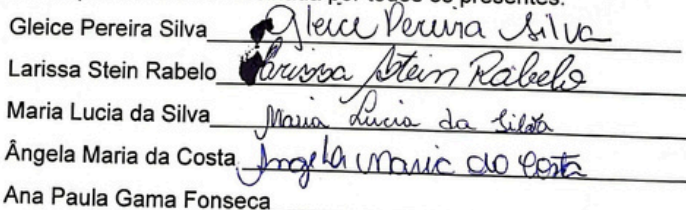 por todos os presentes.
Gleice Pereira Silva Gleice Pereira Silva
Larissa Stein Rabelo Larissa Stein Rabelo
Maria Lucia da Silva Maria Lucia da Silva
Ângela Maria da Costa Angela Maria da Costa
Ana Paula Gama Fonseca